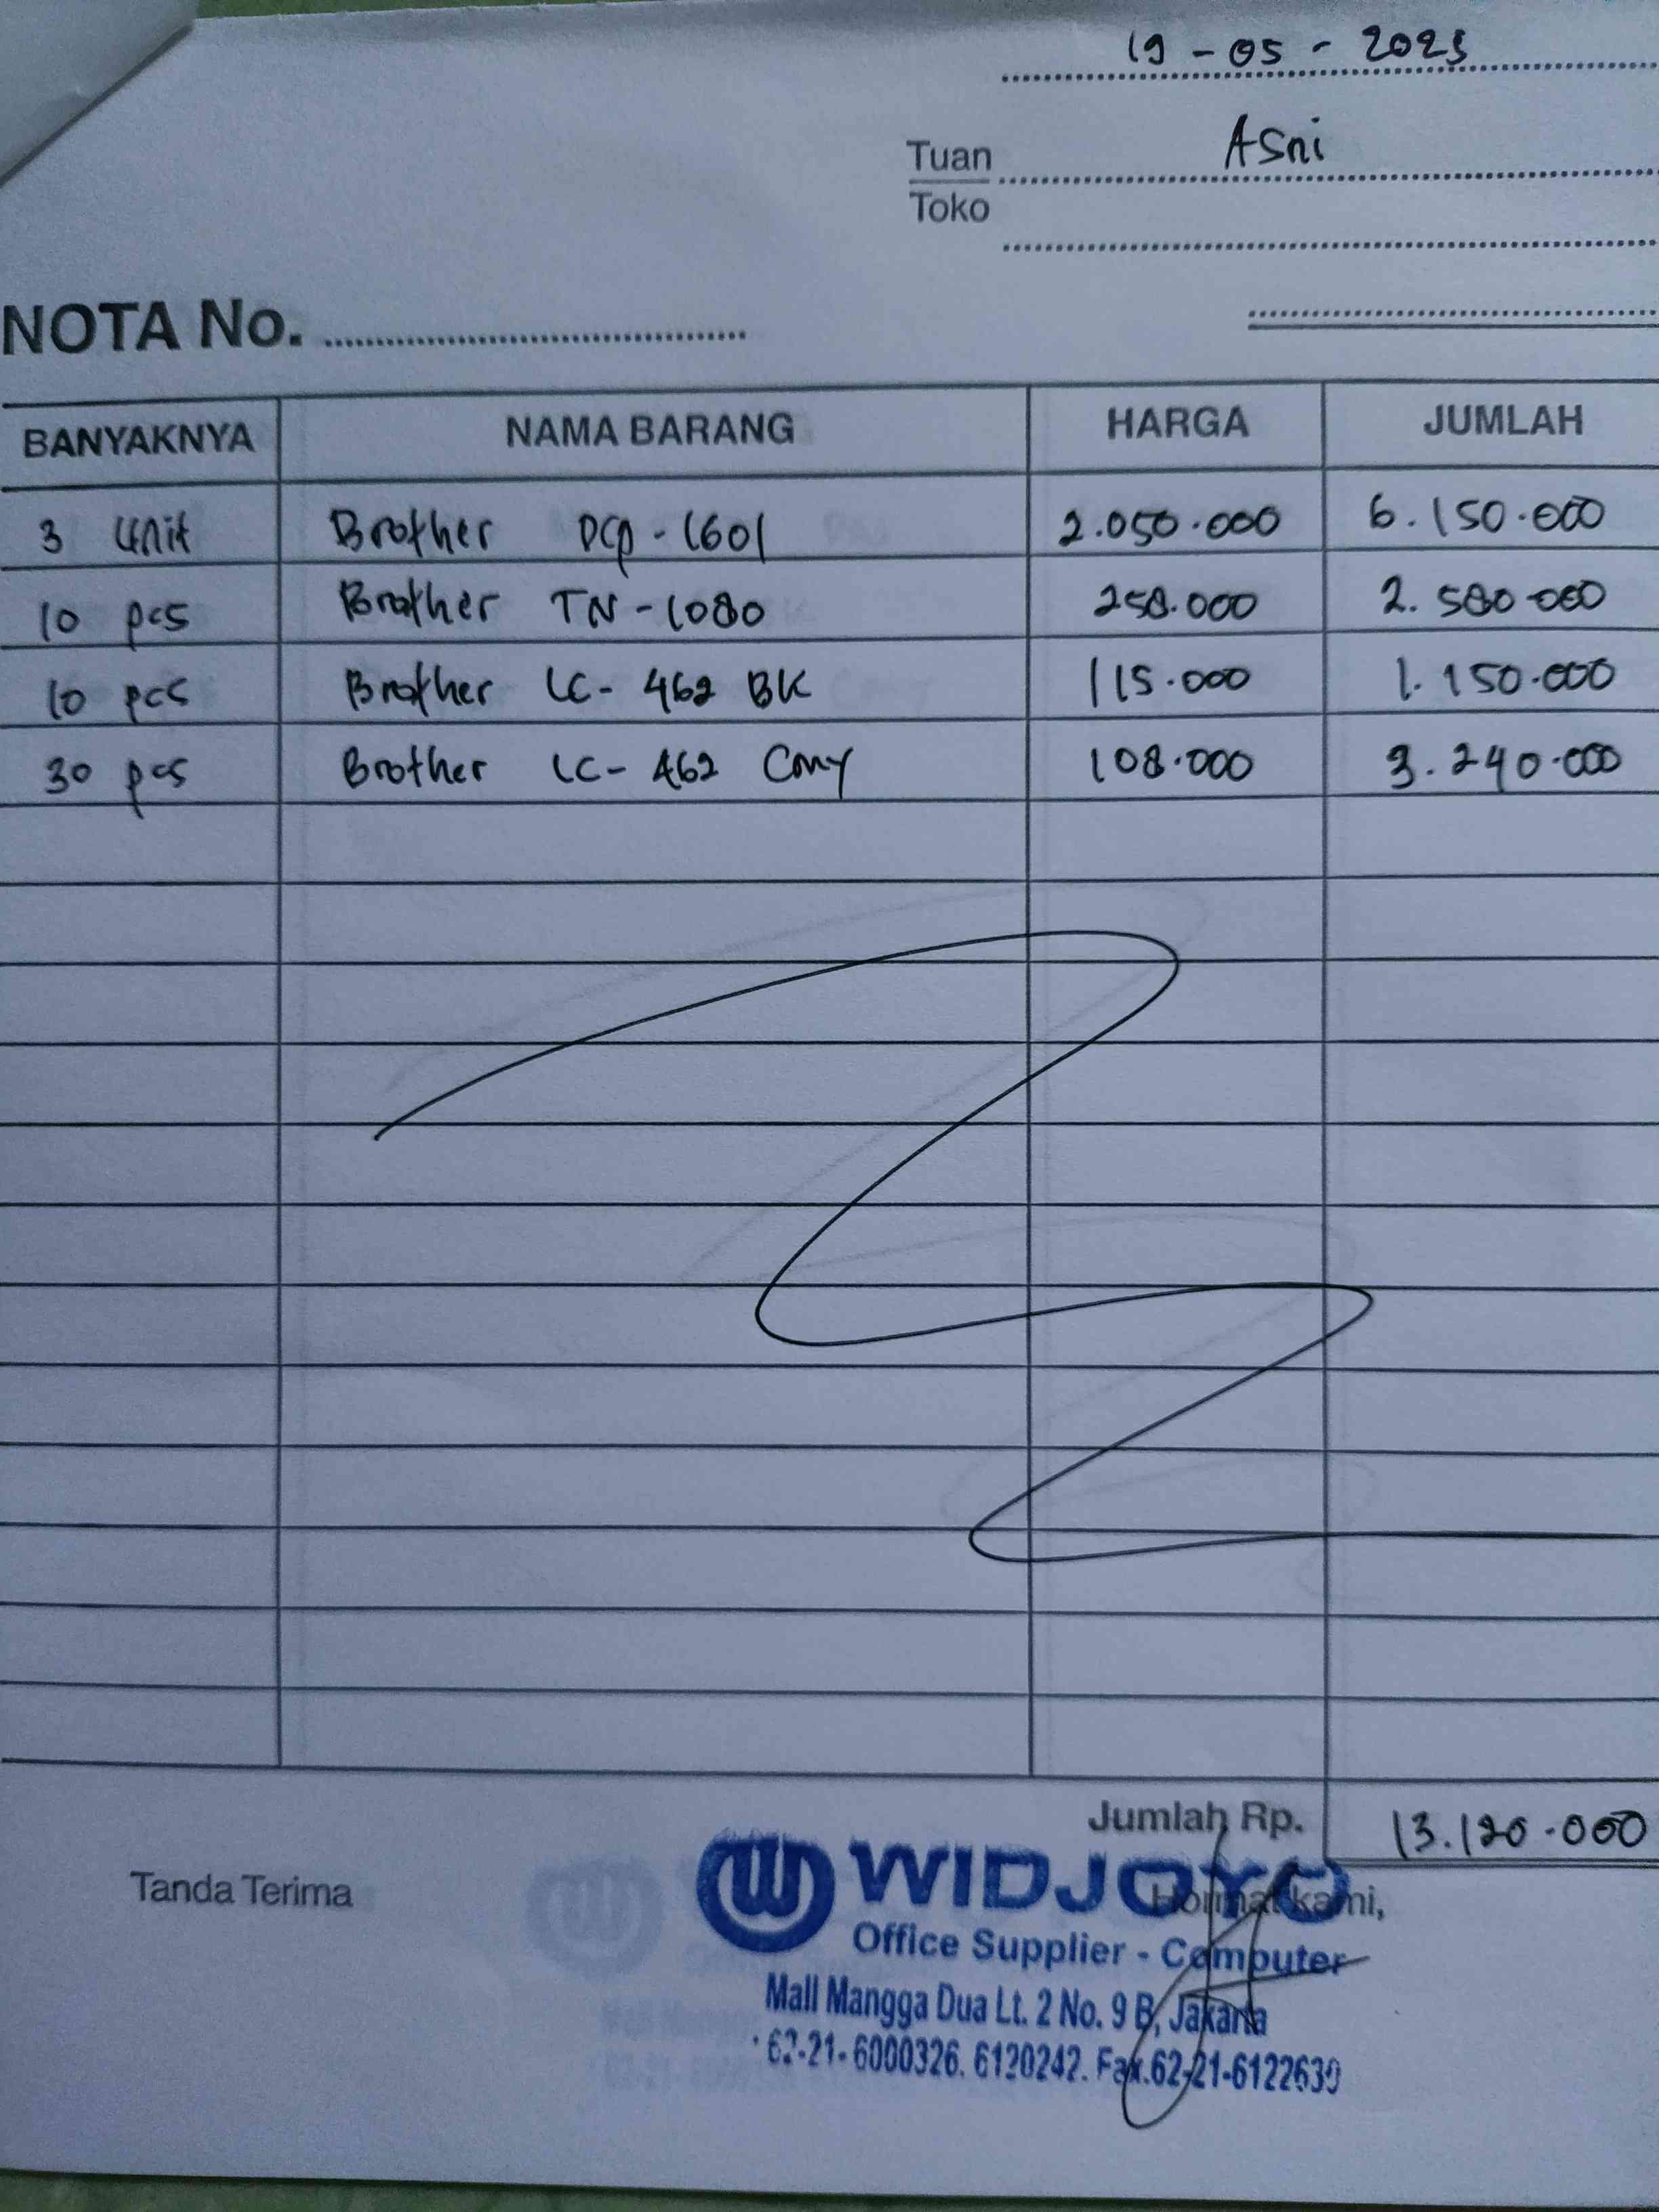 19 - 05 - 2025
Tuan Asni
Toko
NOTA No.
BANYAKNYA NAMA BARANG HARGA JUMLAH
3 Unit Brother DCP - 1601 2.050.000 6.150.000
10 pcs Brother TN - 1080 258.000 2.580.000
10 pcs Brother LC - 462 BK 115.000 1.150.000
30 pcs Brother LC - 462 Cmy 108.000 3.240.000
Jumlah Rp. 13.120.000
Tanda Terima Hormat kami,
WIDJOYO
Office Supplier - Computer
Mall Mangga Dua Lt. 2 No. 9 B, Jakarta
62-21-6000326. 6120242. Fax.62-21-6122630